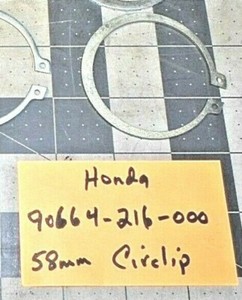 Honda
90664-216-000
58mm Circlip